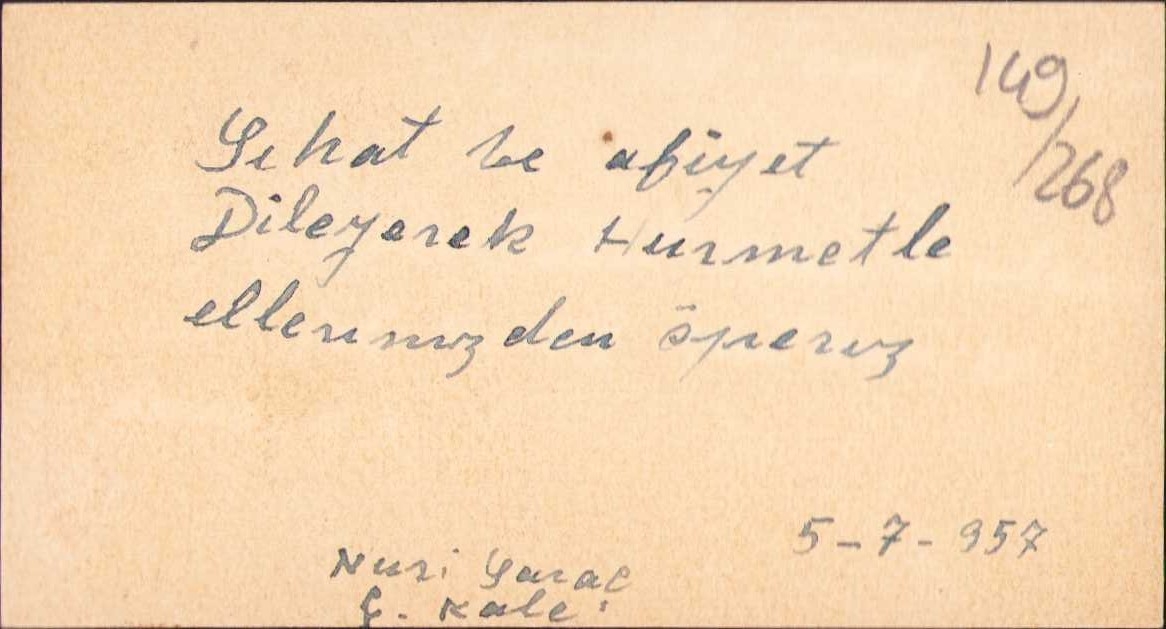 149/268
Sıhat ve afiyet
Dileyerek Hurmetle
ellerınızden öperız
5-7-957
Nuri Saraç
Ç. Kale